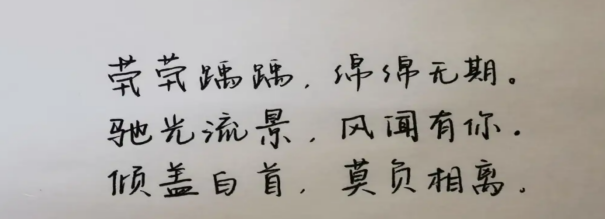 茕茕踽踽，绵绵无期。
驰光流景，风闻有你.
倾盖白首，莫负相离.